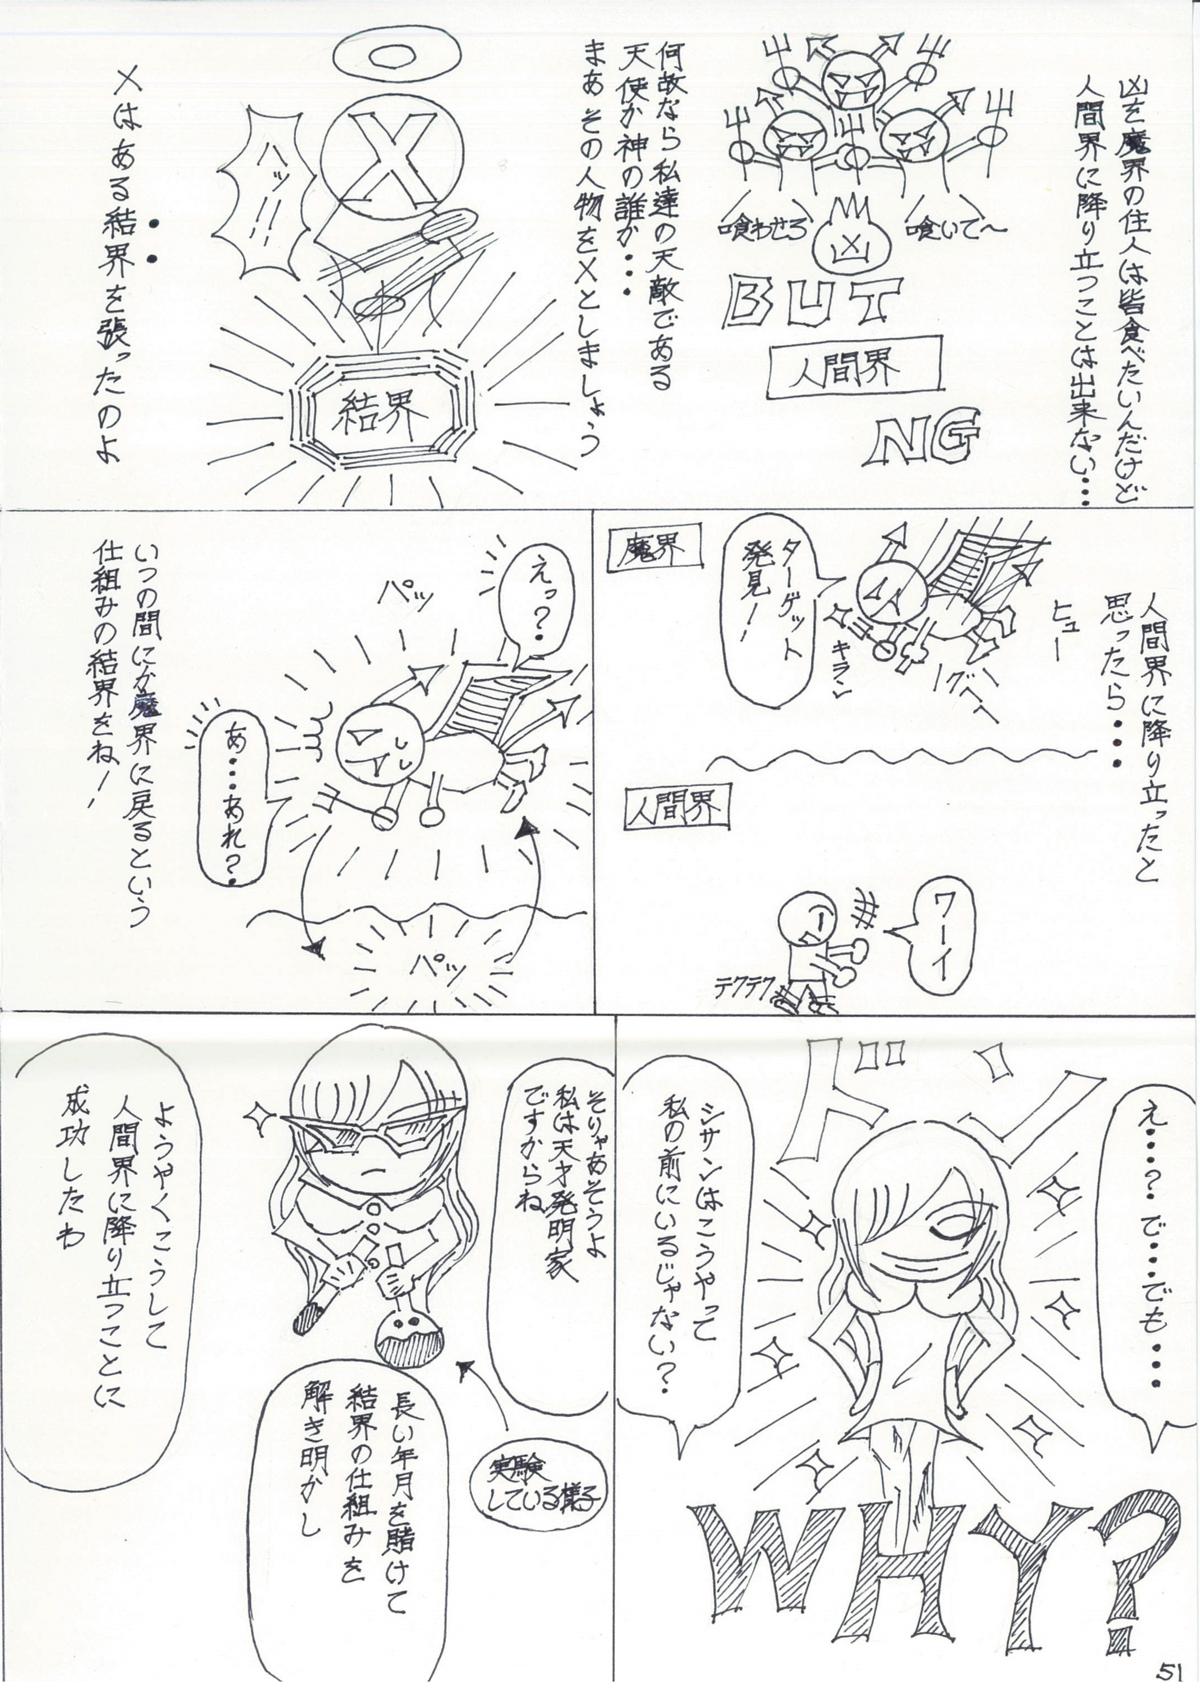 凶を魔界の住人は皆食べたいんだけど
人間界に降り立つことは出来ない‥‥
喰いて〜
喰わせろ
凶
BUT
人間界
NG
何故なら私達の天敵である
天使か神の誰か・・・
まあその人物をXとしましょう
X
ハッ!!
結界
Xはある結界を張ったのよ
人間界に降り立ったと
思ったら・・・・
ヒュー
魔界
ターゲット
発見!
キラン
グヘヘ
人間界
ワーイ
テクテク
えっ?
パッ
あ・・・あれ?
パッ
いつの間にか魔界に戻るという
仕組みの結界をね!
え・・・?で・・・でも・・・・
ドーン
シサンはこうやって
私の前にいるじゃない?
WHY?
そりゃあそうよ
私は天才発明家
ですからね
実験
している様子
長い年月を賭けて
結界の仕組みを
解き明かし
ようやくこうして
人間界に降り立つことに
成功したわ
51